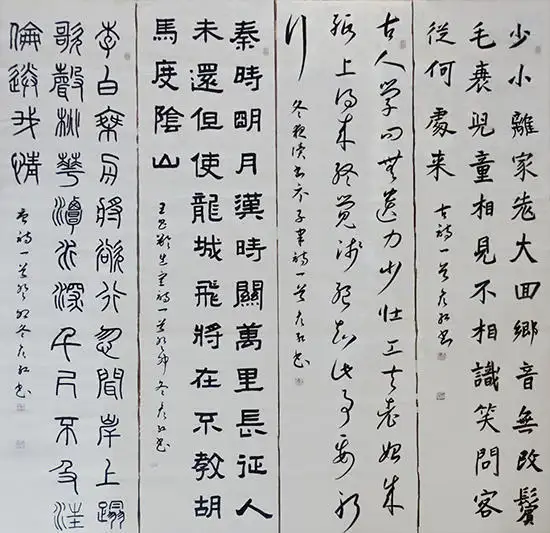 少小離家老大回鄉音無改鬢
毛衰兒童相見不相識笑問客
從何處来
古詩一首彦红书
古人学问無遗力少壮工夫老始成
纸上得来终觉浅绝知此事要躬
行
冬夜读书示子聿诗一首彦红书
秦時眀月漢時關萬里長征人
未還但使龍城飛將在不教胡
馬度陰山
王昌龄出塞诗一首癸卯冬彦红书
李白乘舟將欲行忽聞岸上蹋
歌聲桃華潭水深千尺不及汪
倫送我情
唐诗一首癸卯冬彦红书